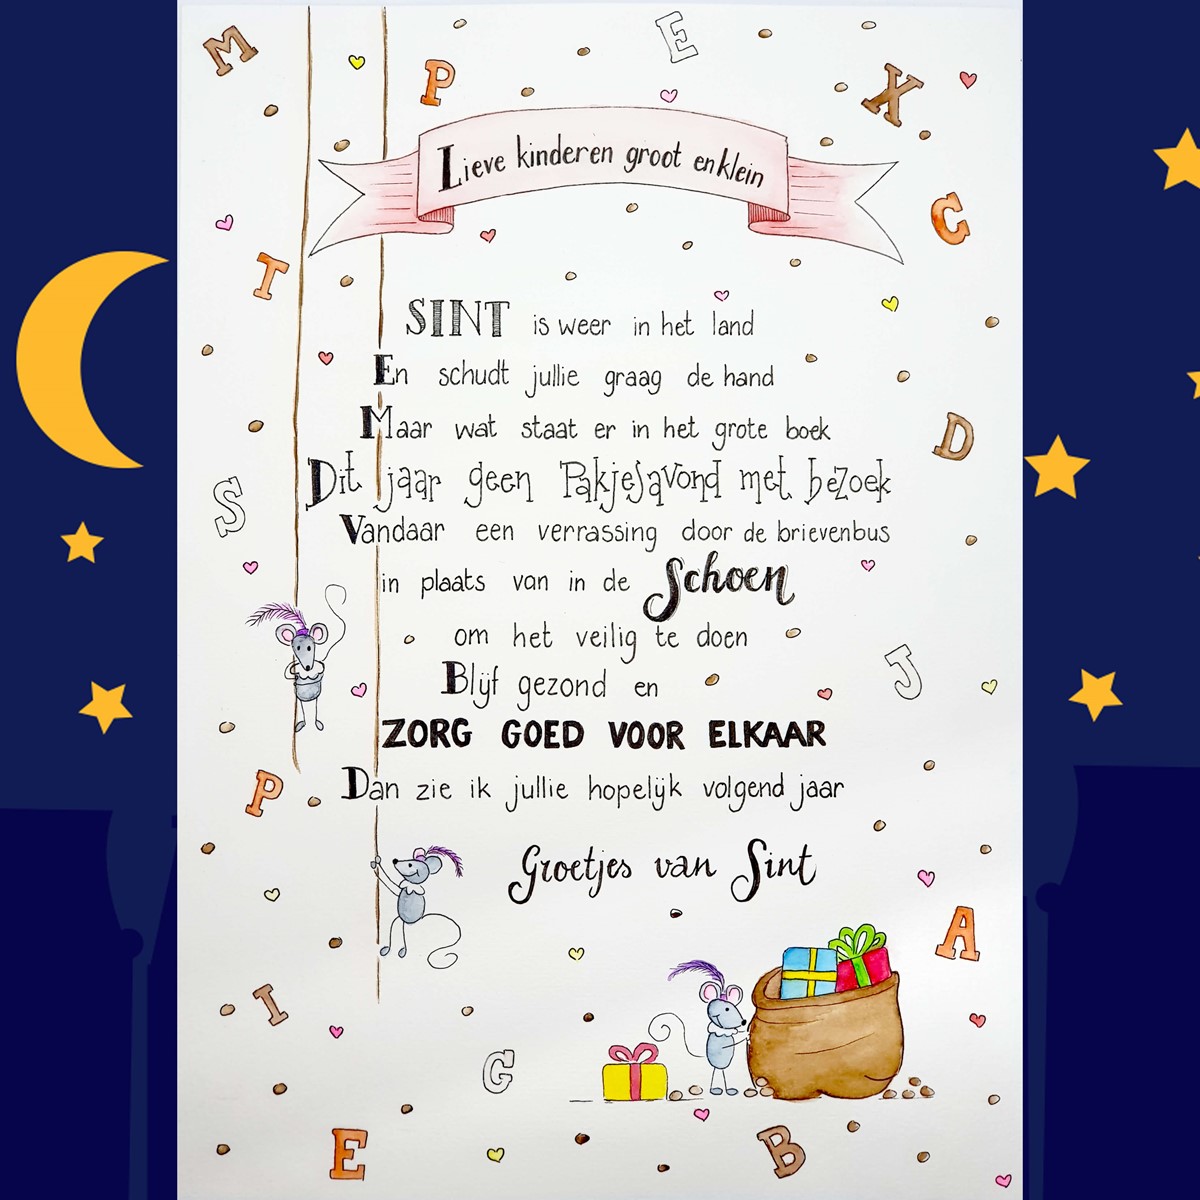 M
P
E
X
Lieve kinderen groot en klein
C
T
SINT is weer in het land
En schudt jullie graag de hand
Maar wat staat er in het grote boek
D
Dit jaar geen Pakjesavond met bezoek
S
Vandaar een verrassing door de brievenbus
in plaats van in de Schoen
om het veilig te doen
J
Blijf gezond en
ZORG GOED VOOR ELKAAR
Dan zie ik jullie hopelijk volgend jaar
P
Groetjes van Sint
A
I
G
E
B